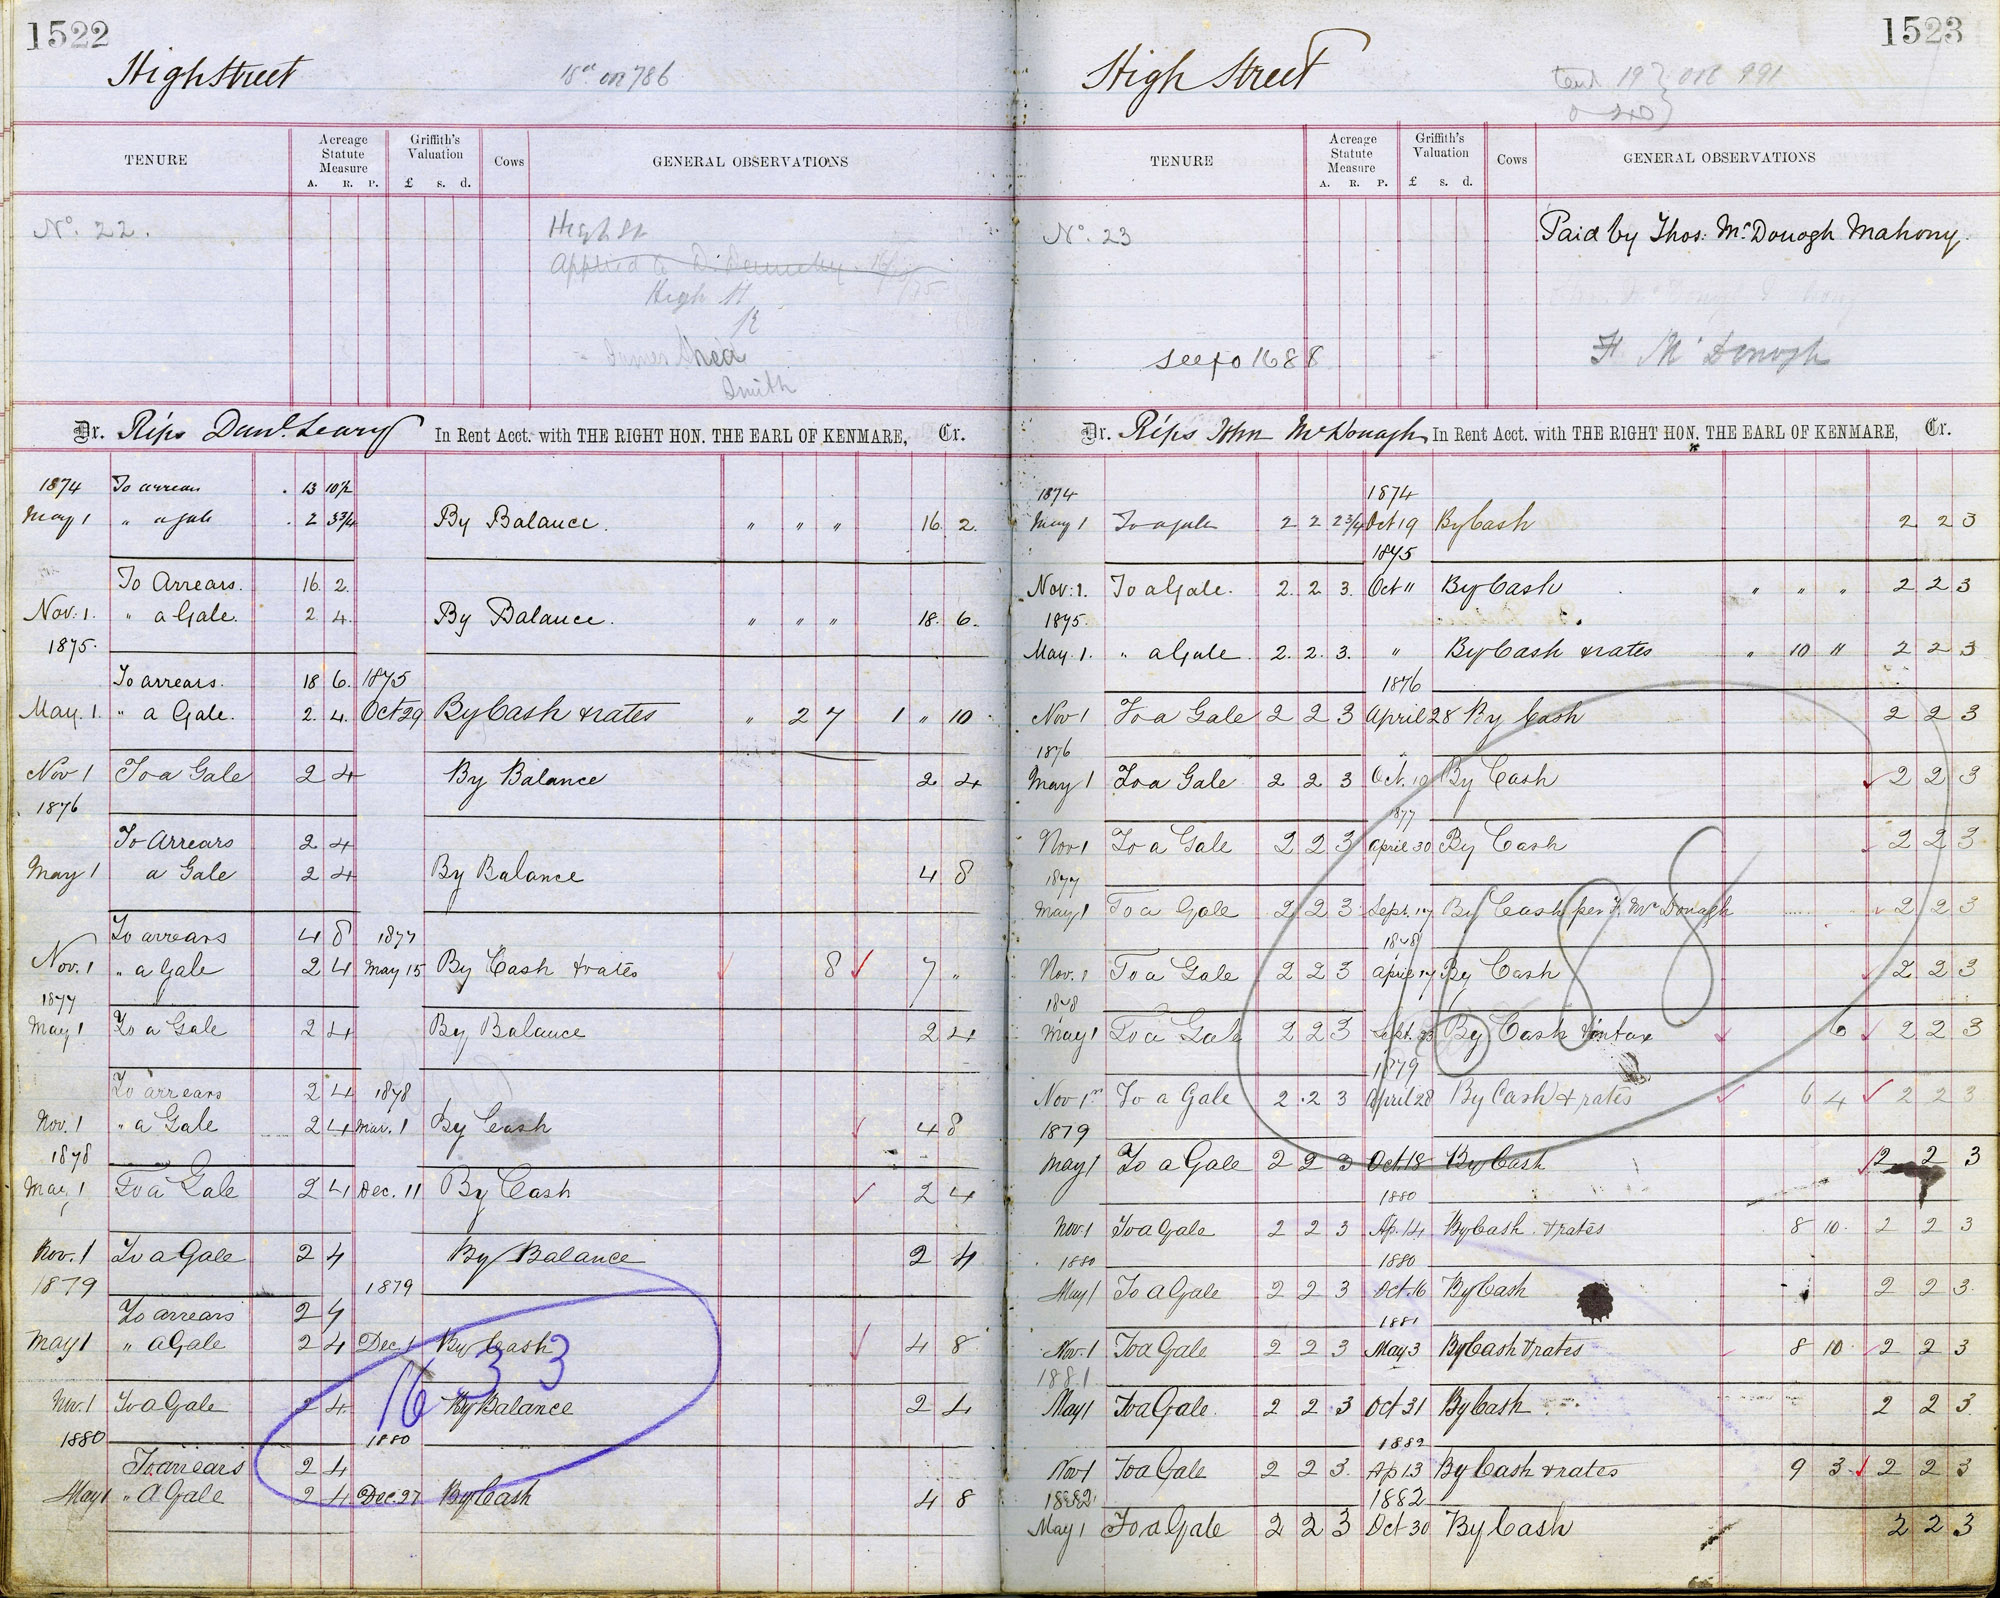 1522
High Street
18th on 786
TENURE
Acreage Statute Measure
A. R. P.
Griffith's Valuation
£ s. d.
Cows
GENERAL OBSERVATIONS
No. 22.
High St
Applied to D. Dennehy
High St
James Shea
Smith
Dr. Reps Danl. Leary In Rent Acct. with THE RIGHT HON. THE EARL OF KENMARE, Cr.
1874 To arrears . 13 10½
May 1 " a gale . 2 3¾ By Balance. " " " 16. 2.
To Arrears. 16. 2.
Nov: 1. " a Gale. 2 4. By Balance. " " " 18. 6.
1875.
To arrears. 18 6. 1875
May. 1. " a Gale. 2. 4. Oct 29 By Cash & rates " 2 7 1 " 10.
Nov 1 To a Gale 2 4 By Balance 2 4
1876
To Arrears 2 4
May 1 a Gale 2 4 By Balance 4 8
To arrears 4 8 1877
Nov. 1 " a Gale 2 4 May 15 By Cash & rates 8 7 "
1877
May 1 To a Gale 2 4 By Balance 2 4
To arrears 2 4 1878
Nov. 1 " a Gale 2 4 Mar. 1 By Cash 4 8
1878
May 1 To a Gale 2 4 Dec. 11 By Cash 2 4
Nov. 1 To a Gale 2 4 By Balance 2 4
1879 1879
To arrears 2 4
May 1 " a Gale 2 4 Dec. 1 By Cash 4 8
1633
Nov. 1 To a Gale 2 4 By Balance 2 4
1880 1880
To arrears 2 4
May 1 " a Gale 2 4 Dec. 27 By Cash 4 8
1523
High Street
19 } on 991
TENURE
Acreage Statute Measure
A. R. P.
Griffith's Valuation
£ s. d.
Cows
GENERAL OBSERVATIONS
No. 23
Paid by Thos. McDonogh Mahony.
see fo 1688
F McDonogh
Dr. Reps John McDonagh In Rent Acct. with THE RIGHT HON. THE EARL OF KENMARE, Cr.
1874 1874
May 1 To a gale 2 2 2¾ Oct 19 By Cash 2 2 3
1875
Nov: 1. To a Gale. 2. 2 3. Oct 11 By Cash " " " 2 2 3
1875.
May. 1. " a Gale 2. 2. 3. " By Cash & rates " 10 " 2 2 3
1876
Nov 1 To a Gale 2 2 3 April 28 By Cash 2 2 3
1876
May 1 To a Gale 2 2 3 Oct. 10 By Cash 2 2 3
1877
Nov 1 To a Gale 2 2 3 April 30 By Cash 2 2 3
1877
May 1 To a Gale 2 2 3 Sept. 17 By Cash per F. McDonagh 2 2 3
1878
Nov. 1 To a Gale 2 2 3 April 17 By Cash 2 2 3
1878
May 1 To a Gale 2 2 3 Sept. 23 By Cash & in tax 6 2 2 3
1688
1879
Nov 1st To a Gale 2 2 3 April 28 By Cash & rates 6 4 2 2 3
1879
May 1 To a Gale 2 2 3 Oct. 18 By Cash 2 2 3
1880
Nov. 1 To a Gale 2 2 3 Ap. 14 By Cash & rates 8 10. 2 2 3
1880 1880
May 1 To a Gale 2 2 3 Oct. 16 By Cash 2 2 3.
1881
Nov. 1 To a Gale 2 2 3 May 3 By Cash & rates 8 10 2 2 3
1881
May 1 To a Gale. 2 2 3 Oct 31 By Cash 2 2 3.
1882
Nov 1 To a Gale 2 2 3. Ap 13 By Cash & rates 9 3. 2 2 3
1882. 1882
May 1 To a Gale 2 2 3 Oct 30 By Cash 2 2 3